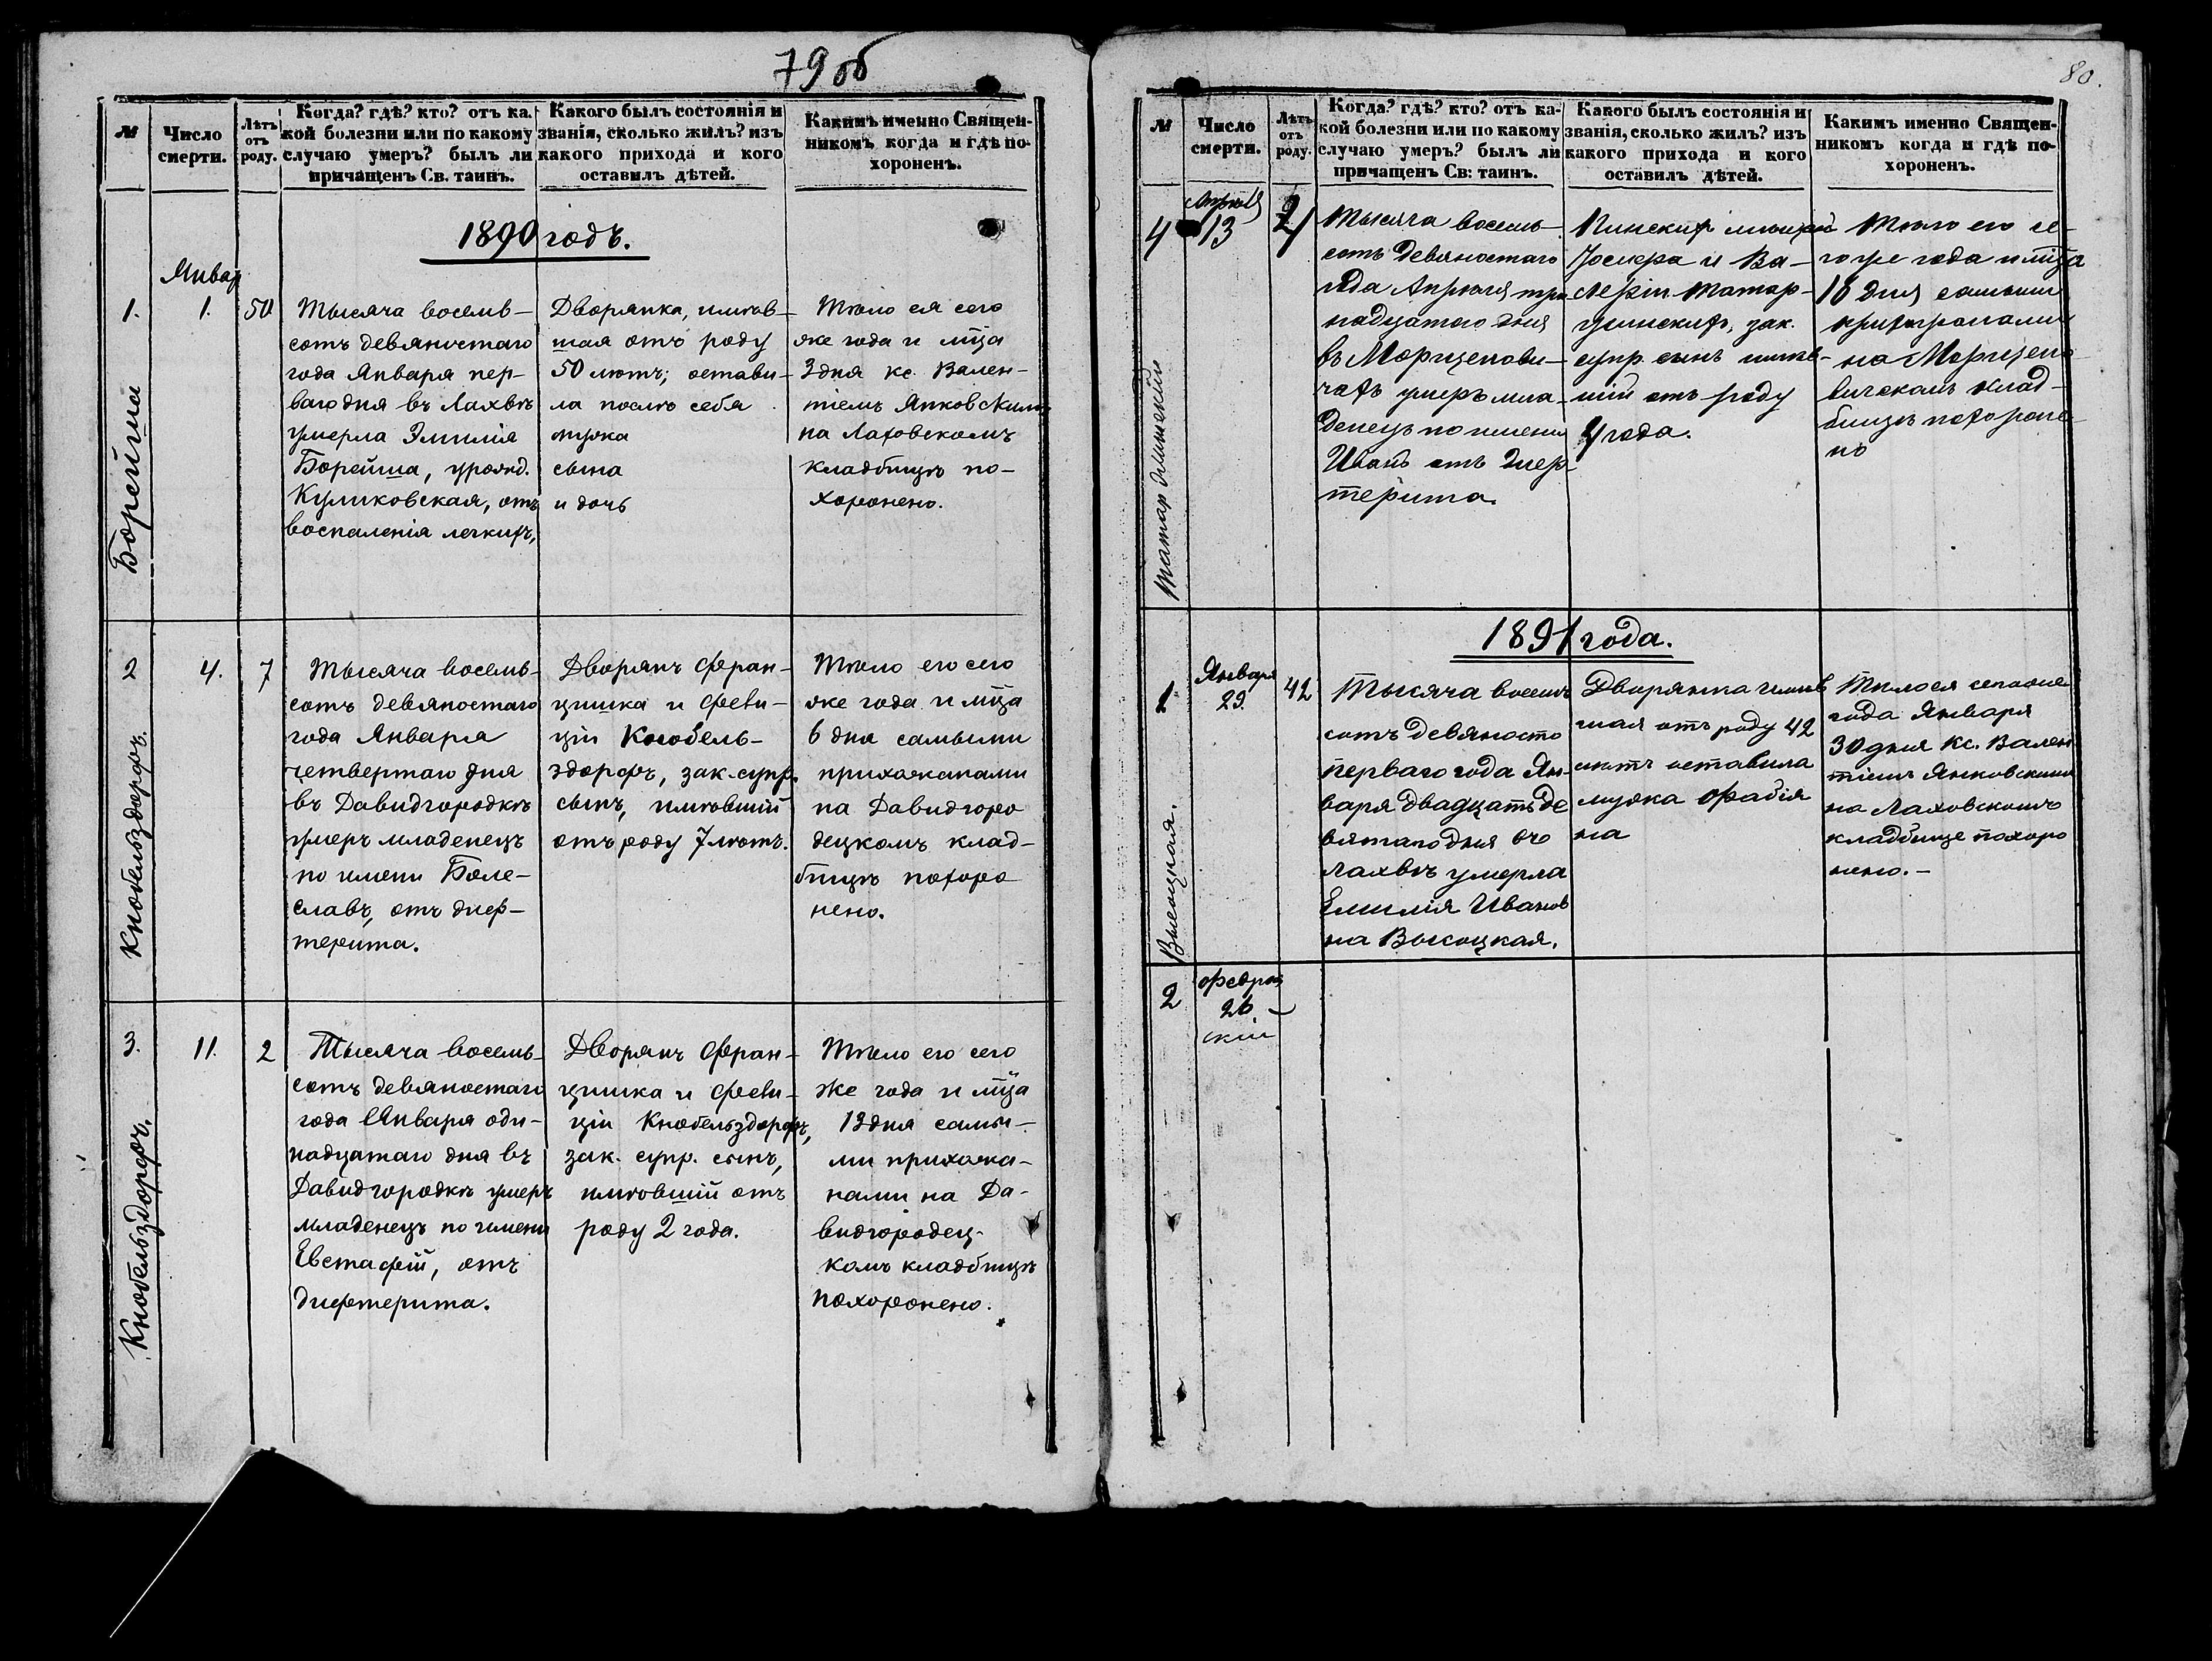 79 об
№
Число
смерти.
Лѣтъ
отъ
роду.
Когда? гдѣ? кто? отъ ка-
кой болезни или по какому
случаю умеръ? былъ ли
причащенъ Св. таинъ.
Какого былъ состоянія и
званія, сколько жилъ? изъ
какого прихода и кого
оставилъ дѣтей.
Какимъ именно Священ-
никомъ когда и гдѣ по-
хороненъ.
1890 годъ.
Январ
1.
Борейша
1.
50
Тысяча восемь-
сотъ девяностаго
года Января пер-
ваго дня въ Лахвѣ
умерла Эмилія
Борейша, урожд.
Куликовская, отъ
воспаленія легкихъ,
Дворянка, имѣв-
шая отъ роду
50 лѣтъ; остави-
ла послѣ себя
мужа
сына
и дочь
Тѣло ея сего
же года и мца
3 дня кс. Вален-
тіемъ Янковскимъ
на Лаховскомъ
кладбищѣ по-
хоронено.
2
Кнобельздорфъ.
4.
7
Тысяча восемь-
сотъ девяностаго
года Января
четвертаго дня
въ Давидгородкѣ
умеръ младенецъ
по имени Боле-
славъ, отъ диф-
терита.
Дворянъ Фран-
цишка и Фели-
ціи Кнобель-
здорфъ, зак. супр.
сынъ, имѣвшій
отъ роду 7 лѣтъ.
Тѣло его сего
же года и мца
6 дня самыми
прихожанами
на Давидгоро
децкомъ клад-
бищѣ похоро
нено.
3.
Кнобельздорфъ.
11.
2
Тысяча восемь-
сотъ девяностаго
года Января оди-
надцатаго дня въ
Давидгородкѣ умеръ
младенецъ по имени
Евстафій, отъ
дифтерита.
Дворянъ Фран-
цишка и Фели-
ціи Кнобельздорфъ,
зак. супр. сынъ,
имѣвшій отъ
роду 2 года.
Тѣло его сего
же года и мца
13 дня самы-
ми прихожа-
нами на Да-
видгородец-
комъ кладбищѣ
похоронено.
80.
№
Число
смерти.
Лѣтъ
отъ
роду.
Когда? гдѣ? кто? отъ ка-
кой болезни или по какому
случаю умеръ? былъ ли
причащенъ Св: таинъ.
Какого былъ состоянія и
званія, сколько жилъ? изъ
какого прихода и кого
оставилъ дѣтей.
Какимъ именно Священ-
никомъ когда и гдѣ по-
хороненъ.
4
Апрѣля
13
Тысяча восемь-
сотъ девяностаго
года Апрѣля три
надцатаго дня
въ Морщенови-
чахъ умеръ мла-
денецъ по имени
Иванъ отъ диф-
терита.
Пинскихъ мѣщанъ
и Ва-
леріи Татар-
жинскихъ, зак.
супр. сынъ имѣв-
шій отъ роду
года.
Тѣло его се-
го же года и мца
16 дня самыми
прихожанами
на Морщено
вичскомъ клад-
бищѣ похороне
но
1891 года.
1
Высоцкая.
Января
29.
42
Тысяча восемь
сотъ девяносто
перваго года Ян-
варя двадцать де
вятаго дня въ
Лахвѣ умерла
Емилія Иванов
на Высоцкая.
Дворянка имѣв
шая отъ роду 42
лѣтъ оставила
мужа Фабія
на
Тѣло ея сегоже
года Января
30 дня Кс. Вален
тіемъ Янковскимъ
на Лаховскомъ
кладбище похоро
нено.-
2
Феврал
26
скій